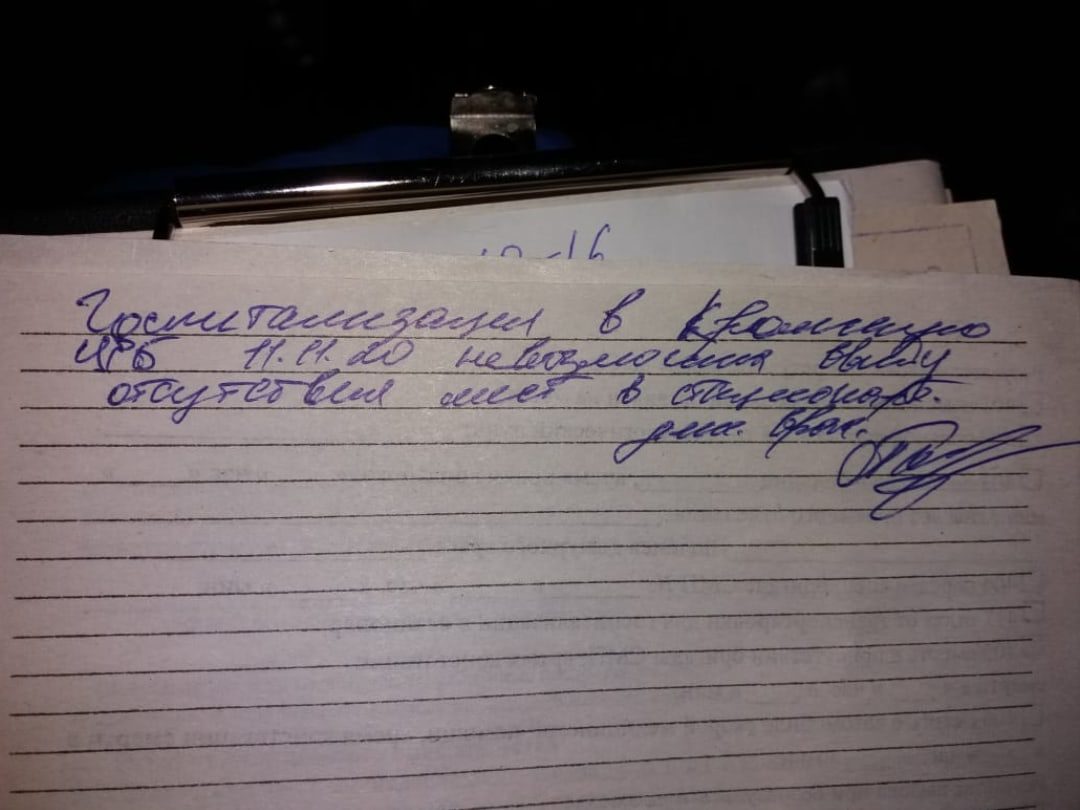 Госпитализация в Кромскую
ЦРБ 11.11.20 невозможна ввиду
отсутствия мест в стационаре.
деж. врач.